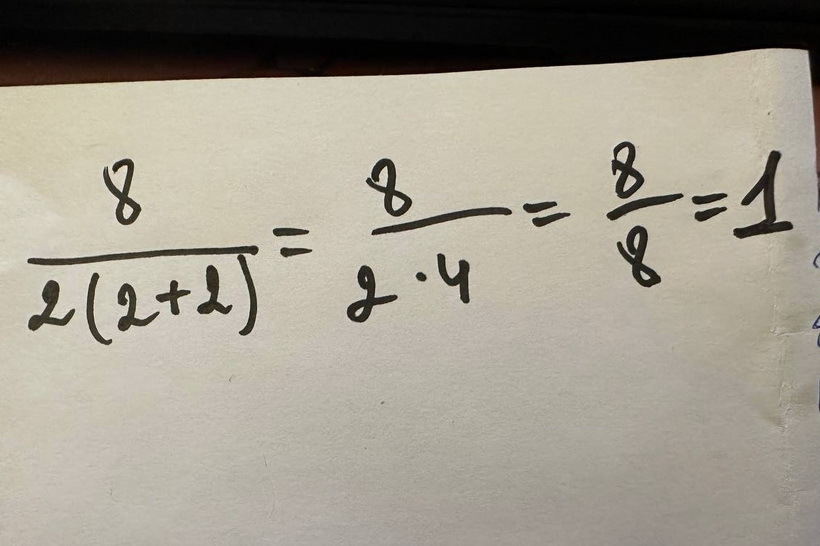 8/2(2+2) = 8/2·4 = 8/8 = 1